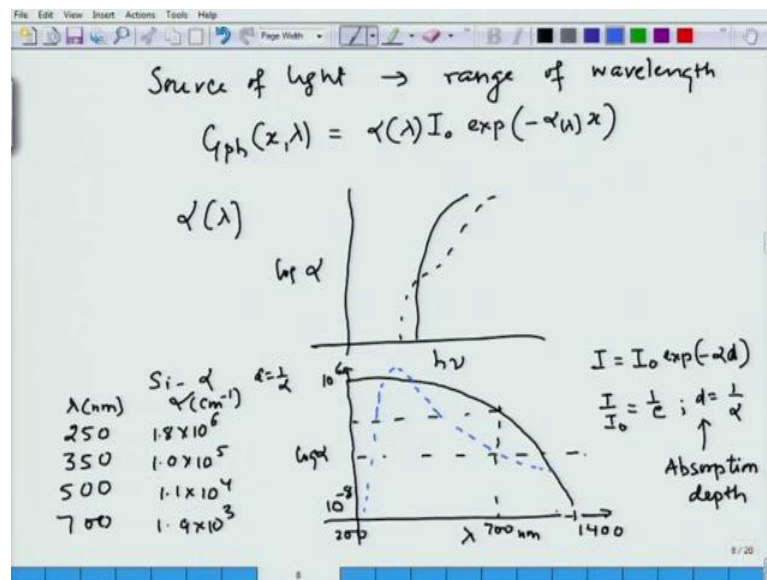 File Edit View Insert Actions Tools Help
Page Width
Source of light → range of wavelength
Gph (x,λ) = α(λ) I₀ exp(-α(λ) x)
α(λ)
log α
hν
Si - α
λ(nm) α(cm⁻¹)
250 1.8×10⁶
350 1.0×10⁵
500 1.1×10⁴
700 1.9×10³
d=1/α
10⁶
log α
10⁻⁸
200 λ 700 nm 1400
I = I₀ exp(-αd)
I/I₀ = 1/e ; d = 1/α
↑
Absorption
depth
8/20
8